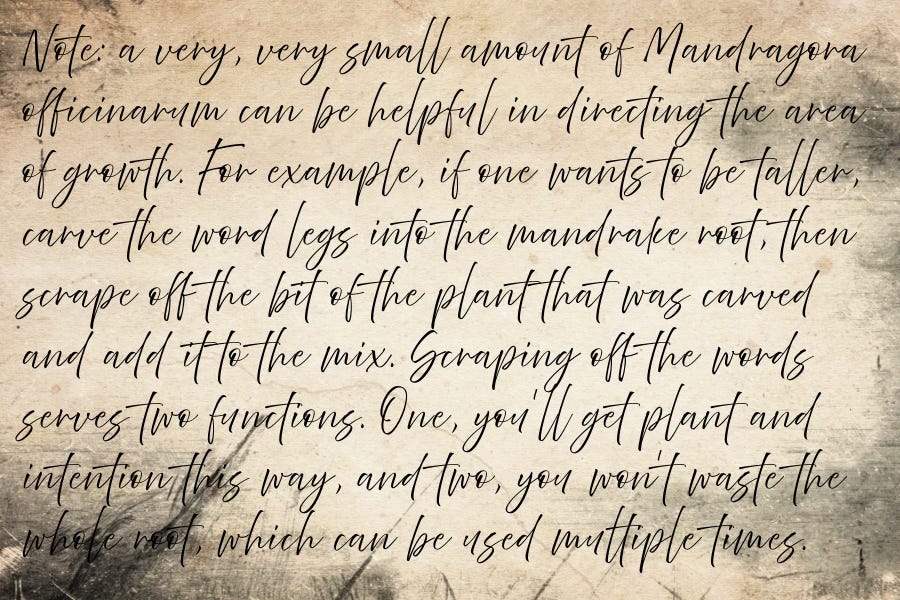 Note: a very, very small amount of Mandragora
officinarum can be helpful in directing the area
of growth. For example, if one wants to be taller,
carve the word legs into the mandrake root, then
scrape off the bit of the plant that was carved
and add it to the mix. Scraping off the words
serves two functions. One, you'll get plant and
intention this way, and two, you won't waste the
whole root, which can be used multiple times.